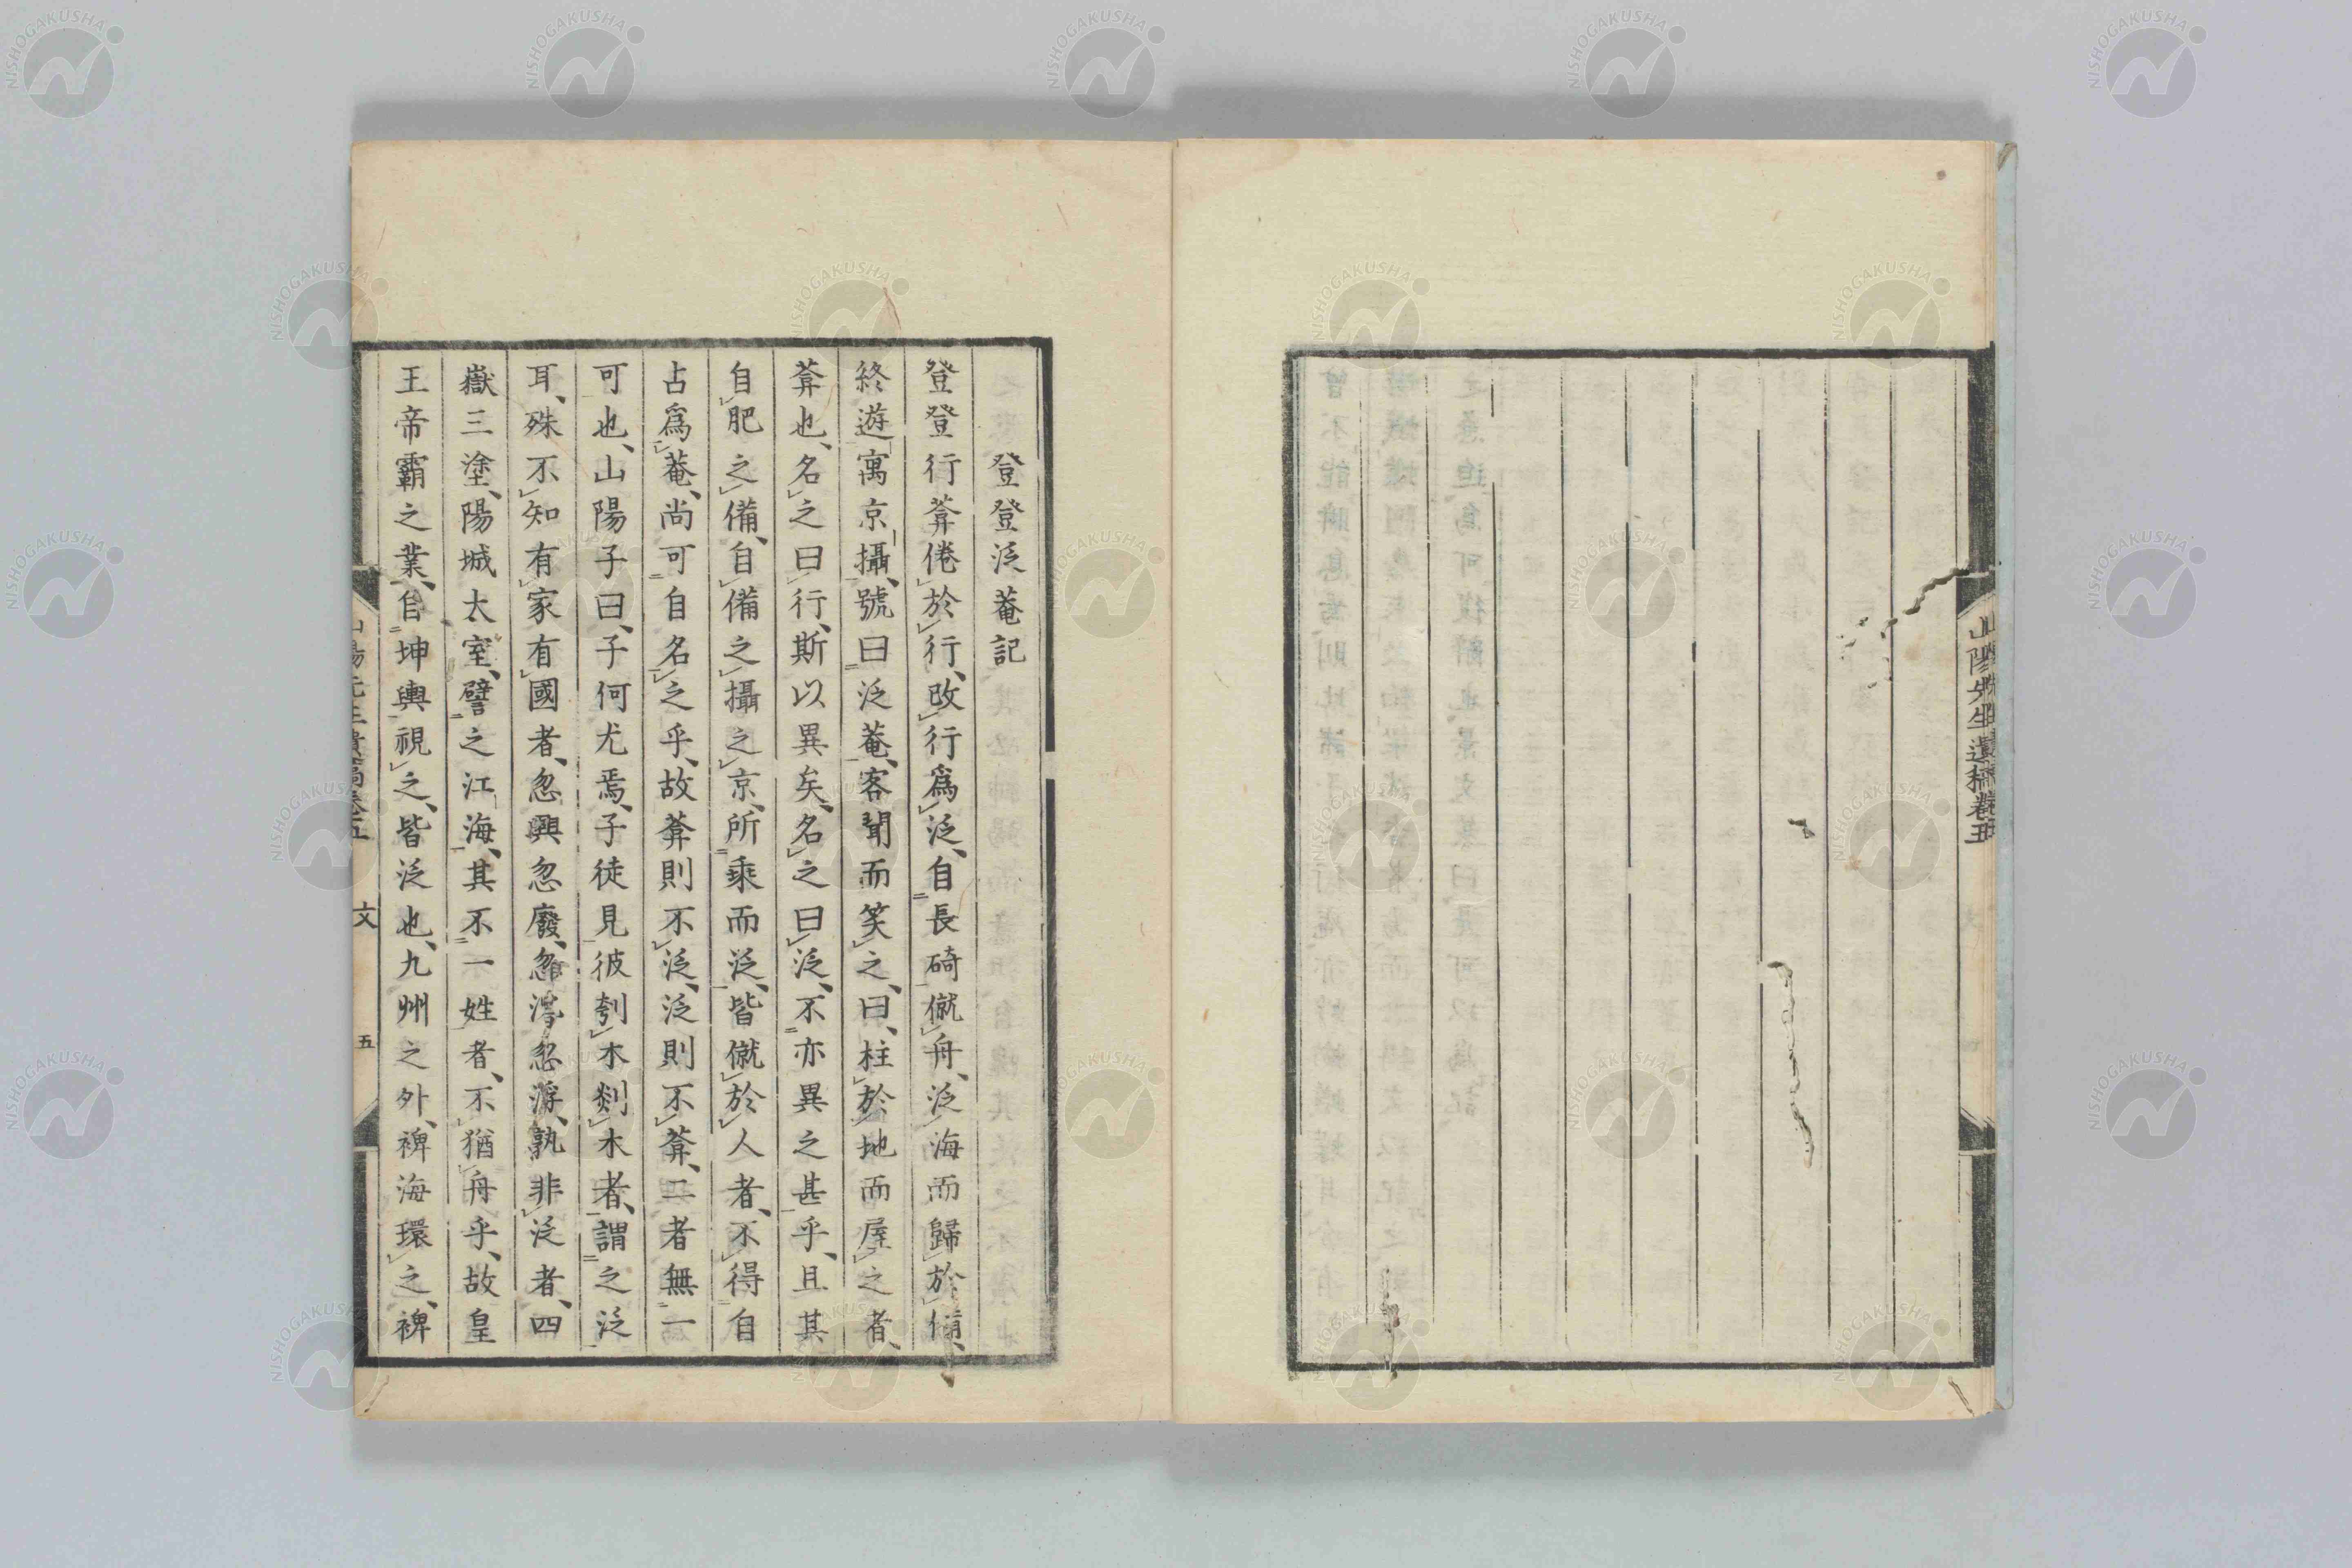 山陽先生遺稿卷五
登登泛菴記
登登行葊倦於行、改行爲泛、自長碕僦舟、泛海而歸於備、
終遊寓京攝、號曰泛菴、客聞而笑之、曰、柱於地而屋之者、
葊也、名之曰行、斯以異矣、名之曰泛、不亦異之甚乎、且其
自肥之備、自備之攝之京、所乘而泛、皆僦於人者、不得自
占爲菴、尚可自名之乎、故葊則不泛、泛則不葊、二者無一
可也、山陽子曰、子何尤焉、子徒見彼刳木剡木者、謂之泛
耳、殊不知有家有國者、忽興忽廢、忽滯忽浮、孰非泛者、四
嶽三塗、陽城太室、譬之江海、其不一姓者、不猶舟乎、故皇
王帝霸之業、自坤輿視之、皆泛也、九州之外、裨海環之、裨
文
五
NISHOGAKUSHA